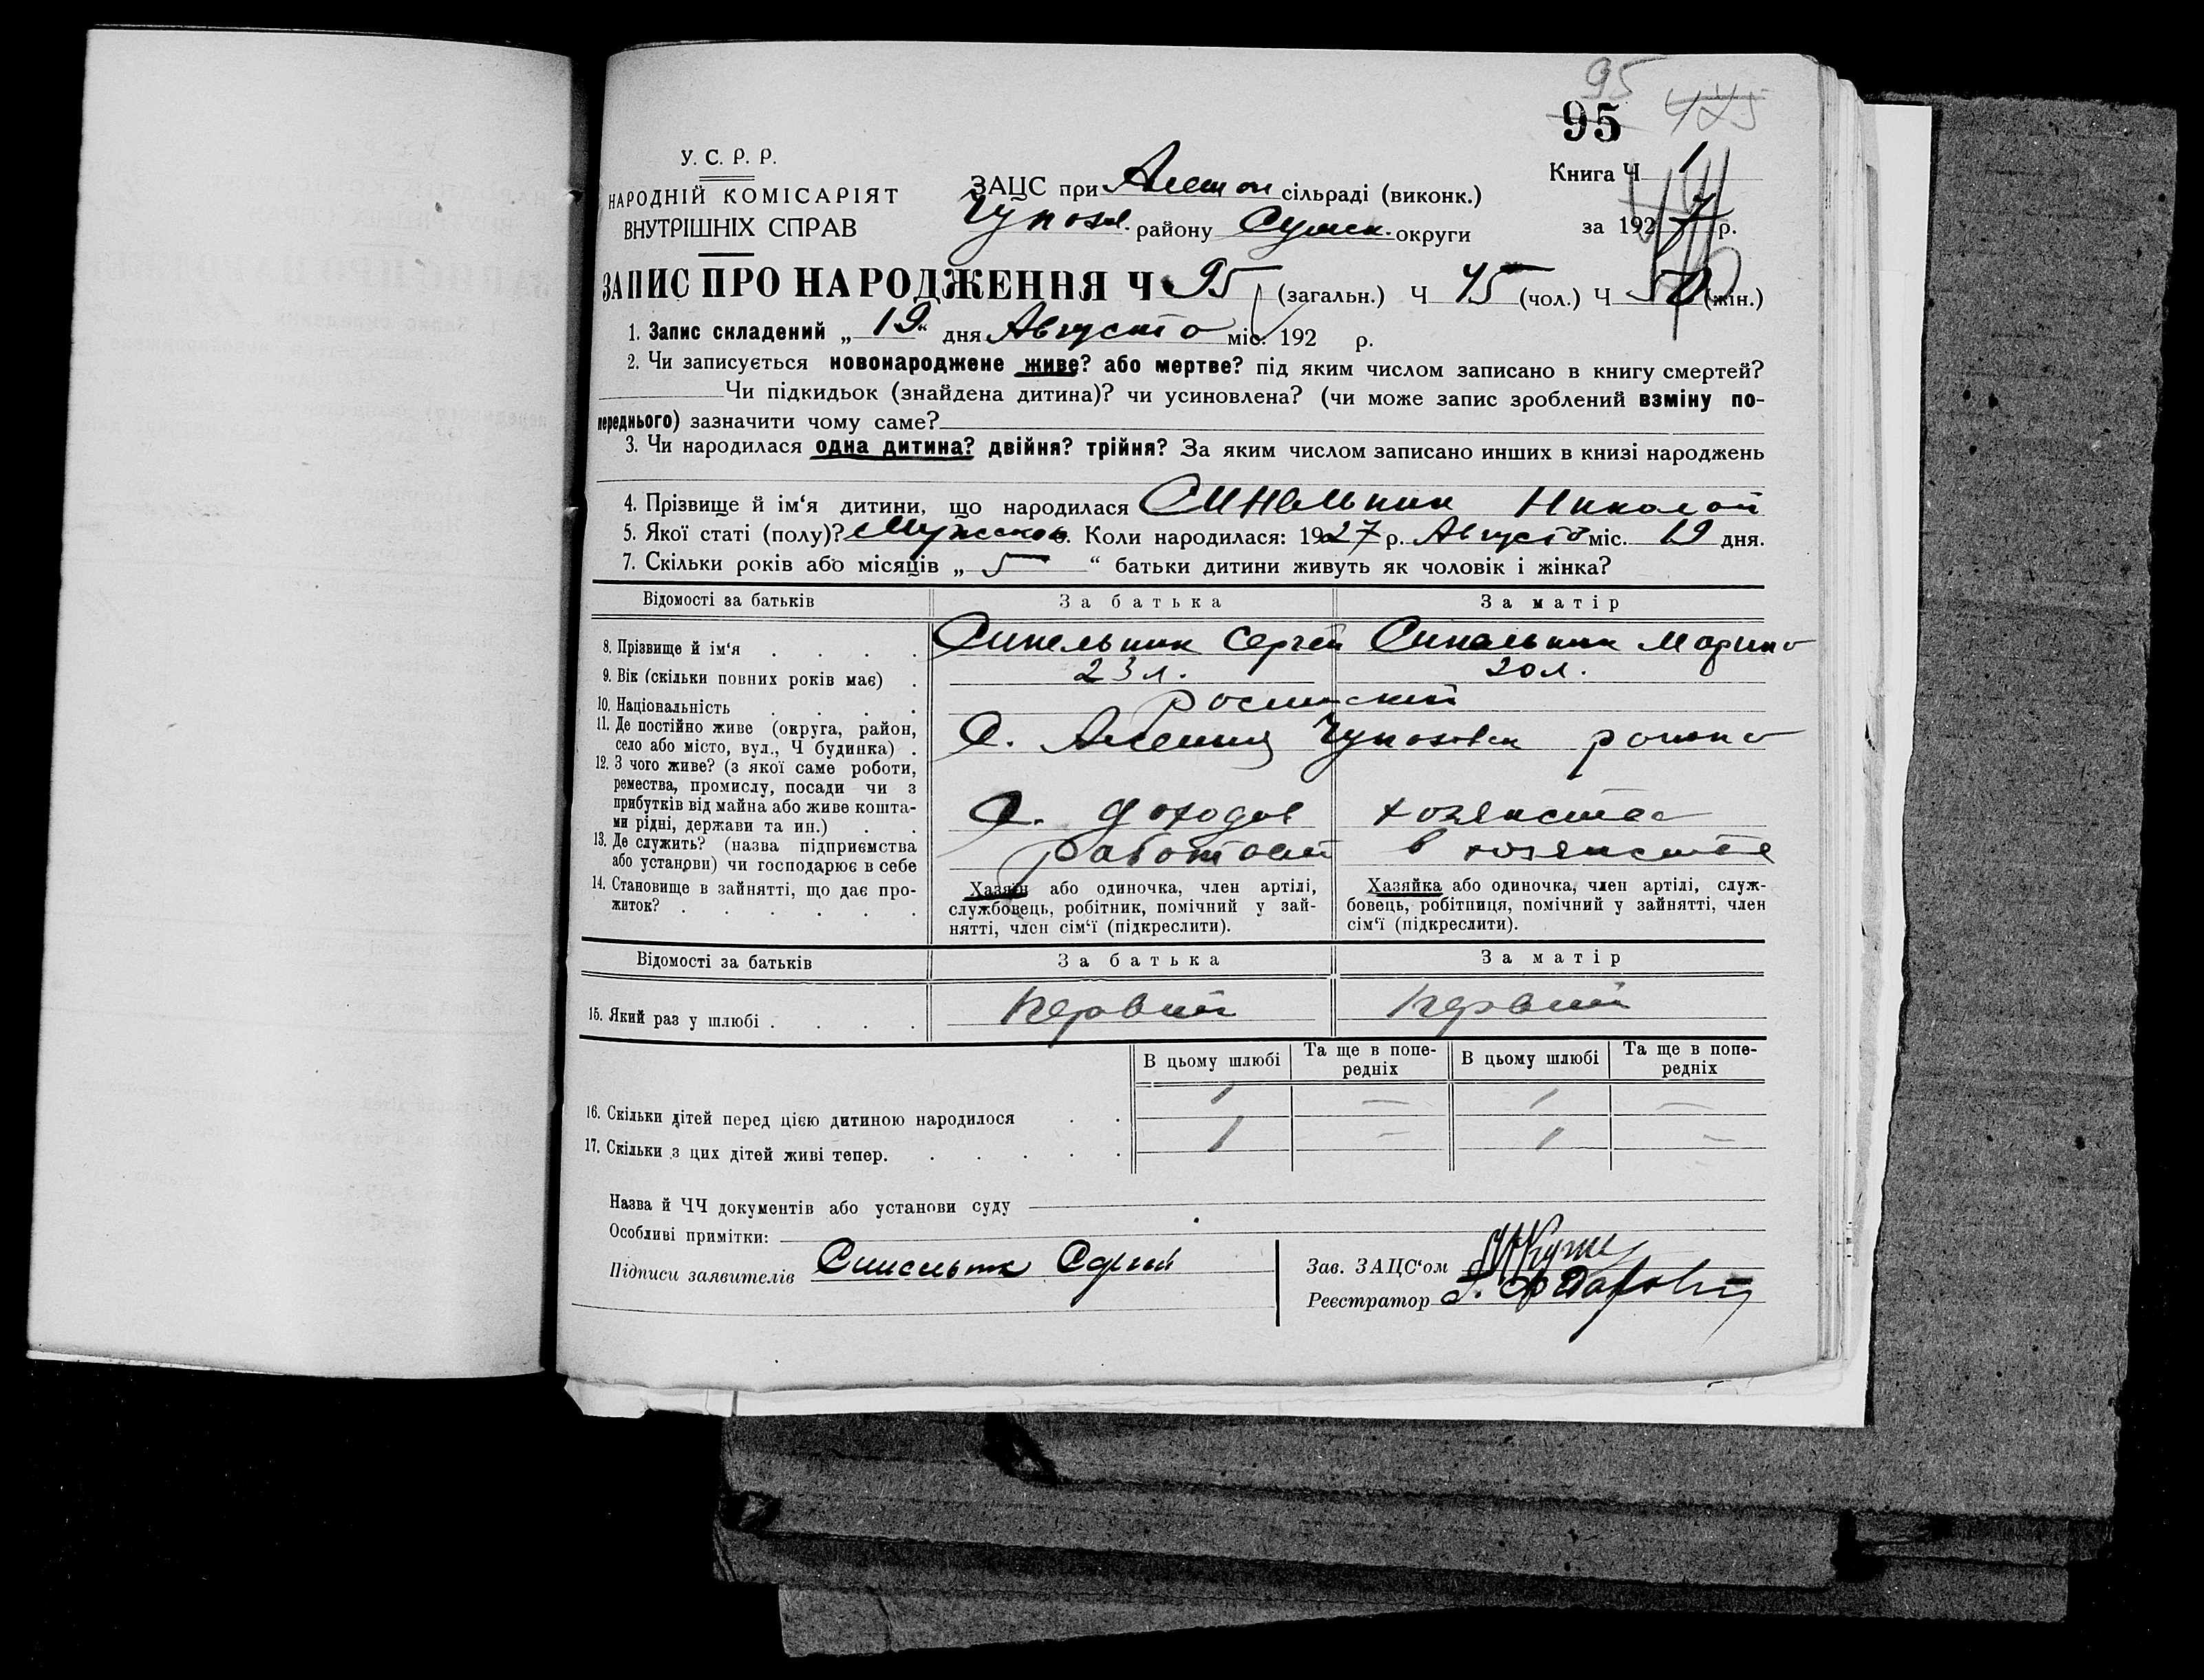 95
95 425
У. С. Р. Р.
НАРОДНІЙ КОМІСАРІЯТ
ВНУТРІШНІХ СПРАВ
ЗАЦС при сільраді (виконк.)
району Сумск. округи
Книга Ч 1
за 1927 р.
ЗАПИС ПРО НАРОДЖЕННЯ Ч 95 (загальн.) Ч 45 (чол.) Ч 50 (жін.)
1. Запис складений „ 19 “ дня Августа міс. 192 р.
2. Чи записується новонароджене живе? або мертве? під яким числом записано в книгу смертей?
Чи підкидьок (знайдена дитина)? чи усиновлена? (чи може запис зроблений взміну по-
переднього) зазначити чому саме?
3. Чи народилася одна дитина? двійня? трійня? За яким числом записано инших в книзі народжень
4. Прізвище й ім‘я дитини, що народилася Синельник Николай
5. Якої статі (полу)? Мужеск. Коли народилася: 1927 р. Августа міс. 19 дня.
7. Скільки років або місяців „ 5 “ батьки дитини живуть як чоловік і жінка?
Відомості за батьків За батька За матір
8. Прізвище й ім‘я . . . . Синельник Сергей Синельник Марина
9. Вік (скільки повних років має) . 23 л. 20 л.
10. Національність . . . .
11. Де постійно живе (округа, район,
село або місто, вул., Ч будинка) . С. района
12. З чого живе? (з якої саме роботи,
ремества, промислу, посади чи з
прибутків від майна або живе кошта-
ми рідні, держави та ин.) . . С. доходов хозяйства
13. Де служить? (назва підприємства
або установи) чи господарює в себе работает в хозяйстве
14. Становище в зайнятті, що дає про-
житок? . . . . . .
Хазяїн або одиночка, член артілі,
службовець, робітник, помічний у зай-
нятті, член сім‘ї (підкреслити).
Хазяйка або одиночка, член артілі, служ-
бовець, робітниця, помічний у зайнятті, член
сім‘ї (підкреслити).
Відомості за батьків За батька За матір
15. Який раз у шлюбі . . . . Первый Первый
В цьому шлюбі Та ще в попе-
редніх В цьому шлюбі Та ще в попе-
редніх
16. Скільки дітей перед цією дитиною народилося . . 1 — 1 —
17. Скільки з цих дітей живі тепер. . . . . . 1 — 1 —
Назва й ЧЧ документів або установи суду
Особливі примітки:
Підписи заявителів Синельник Сергей
Зав. ЗАЦС‘ом
Реєстратор